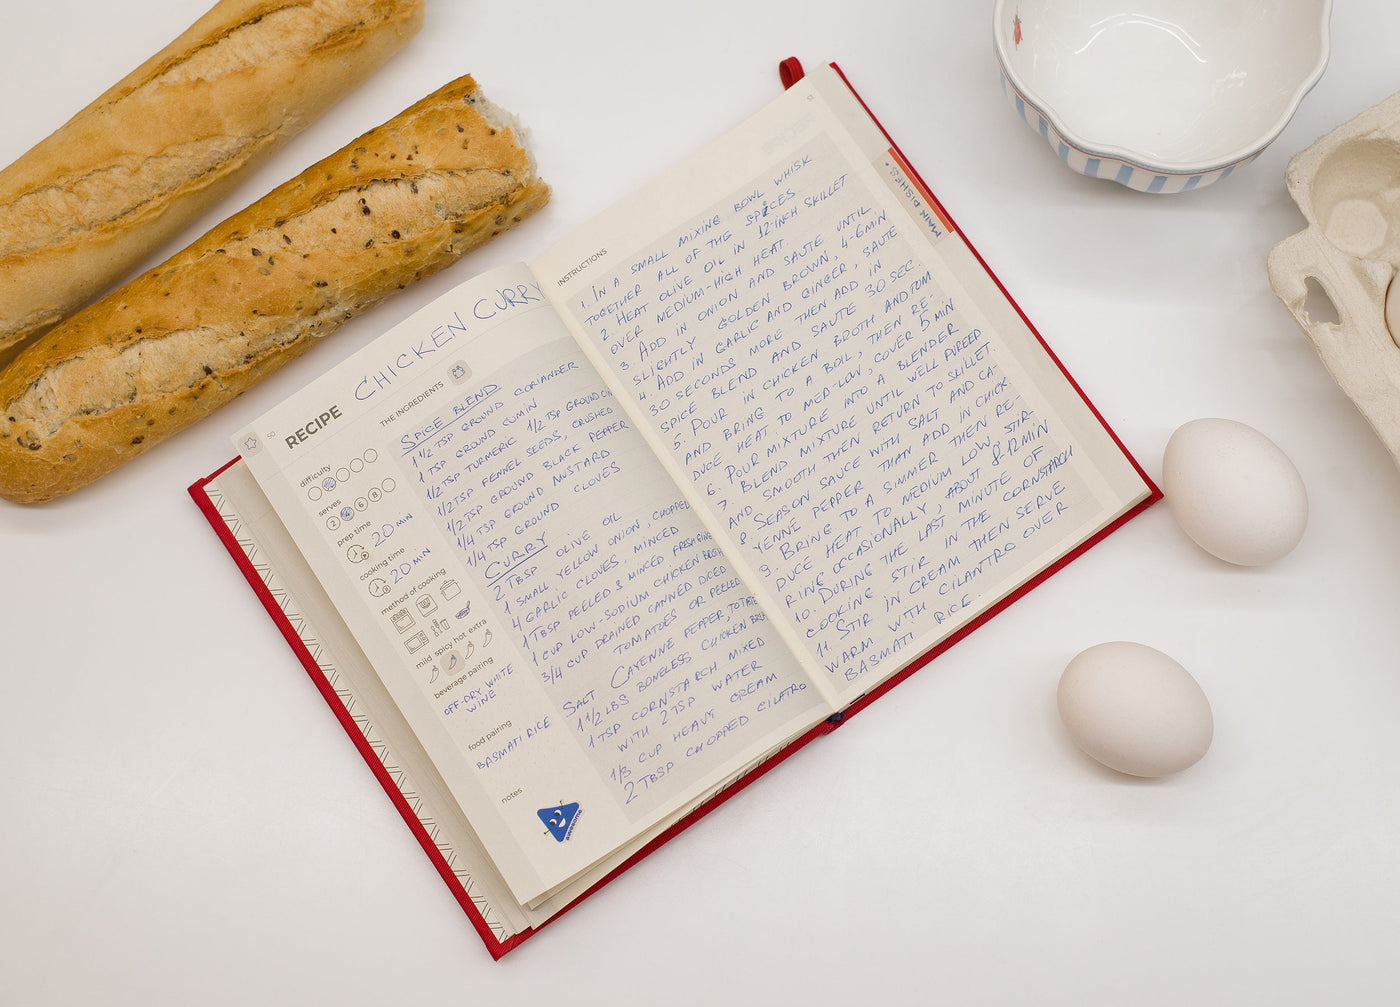 50
RECIPE CHICKEN CURR
THE INGREDIENTS
difficulty
serves
2 4 6 8
prep time
20 MIN
cooking time
20 MIN
method of cooking
mild spicy hot extra
beverage pairing
OFF-DRY WHITE
WINE
food pairing
BASMATI RICE
notes
awesome
SPICE BLEND
1 1/2 TSP GROUND CORIANDER
1 TSP GROUND CUMIN
1/2 TSP TURMERIC 1/2 TSP GROUND
1/2 TSP FENNEL SEEDS, CRUSHED
1/2 TSP GROUND BLACK PEPPER
1/4 TSP GROUND MUSTARD
1/4 TSP GROUND CLOVES
CURRY
2 TBSP OLIVE OIL
1 SMALL YELLOW ONION, CHOPPED
4 GARLIC CLOVES, MINCED
1 TBSP PEELED & MINCED FRESH
1 CUP LOW-SODIUM CHICKEN BROTH
3/4 CUP DRAINED CANNED DICED
TOMATOES OR PEELED
SALT CAYENNE PEPPER, TO TASTE
1 1/2 LBS BONELESS CHICKEN
1 TSP CORNSTARCH MIXED
WITH 2 TSP WATER
1/3 CUP HEAVY CREAM
2 TBSP CHOPPED CILATRO
INSTRUCTIONS
MAIN DISHES.
1. IN A SMALL MIXING BOWL WHISK
TOGETHER ALL OF THE SPICES
2. HEAT OLIVE OIL IN 12-INCH SKILLET
OVER MEDIUM-HIGH HEAT.
3. ADD IN ONION AND SAUTE UNTIL
SLIGHTLY GOLDEN BROWN, 4-6 MIN
4. ADD IN GARLIC AND GINGER, SAUTE
30 SECONDS MORE THEN ADD IN
SPICE BLEND AND SAUTE 30 SEC.
5. POUR IN CHICKEN BROTH AND TOM.
AND BRING TO A BOIL, THEN RE-
DUCE HEAT TO MED-LOW, COVER 5 MIN
6. POUR MIXTURE INTO A BLENDER
7. BLEND MIXTURE UNTIL WELL PUREED
AND SMOOTH THEN RETURN TO SKILLET
8. SEASON SAUCE WITH SALT AND CA-
YENNE PEPPER THAN ADD IN CHICK.
9. BRING TO A SIMMER THEN RE-
DUCE HEAT TO MEDIUM LOW, STIR-
RING OCCASIONALLY, ABOUT 8-12 MIN
10. DURING THE LAST MINUTE OF
COOKING STIR IN THE CORNSTARCH
11. STIR IN CREAM THEN SERVE
WARM WITH CILANTRO OVER
BASMATI RICE.